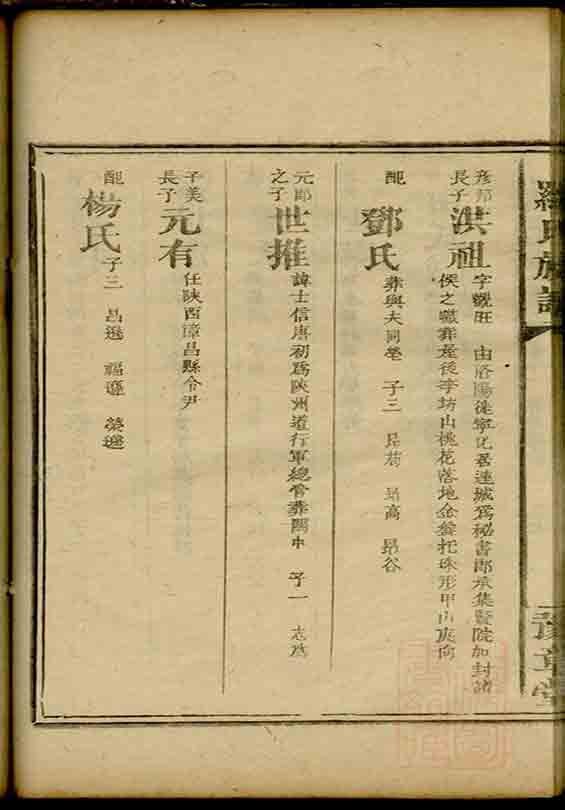 羅氏族譜
豫章堂
彥邦長子 洪祖 字觀旺 由洛陽徙寧化居連城爲秘書郎承集賢院加封諸
侯之職葬產後李坊山桃花落地金盆托珠形甲山庚向
配 鄧氏 葬與夫同塋 子三 昂高 昂谷
元郎之子 世推 諱士信唐初爲陝州道行軍總管葬關中 子一
子美長子 元有 任陝西漳昌縣令尹
配 楊氏 子三 昌遜 福遜 榮遜